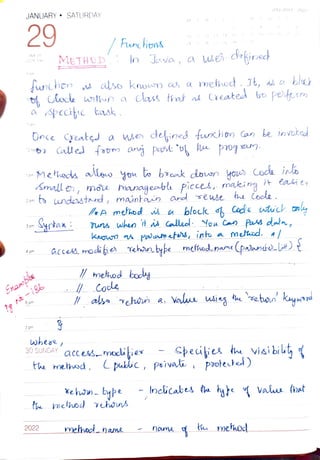 JANUARY • SATURDAY
29
/ Functions
METHOD : In Java, a user defined
function is also known as a method. It is a block
of Code within a class that is created to perform
a specific task.
Once Created a user defined function can be invoked
or called from any part of the program.
Methods allow you to break down your code into
smaller, more manageable pieces, making it easier
to understand, maintain and reuse the code.
/* A method is a block of code which only
Syntax : runs when it is called. You can pass data,
known as parameters, into a method. */
access_modifier return_type method_name (parameter_list) {
// method body
// Code
// also return a value using the 'return' keyword
}
where,
30 SUNDAY access_modifier - Specifies the visibility of
the method. ( public, private, protected)
return_type - Indicates the type of value that
the method returns
2022 method_name - name of the method